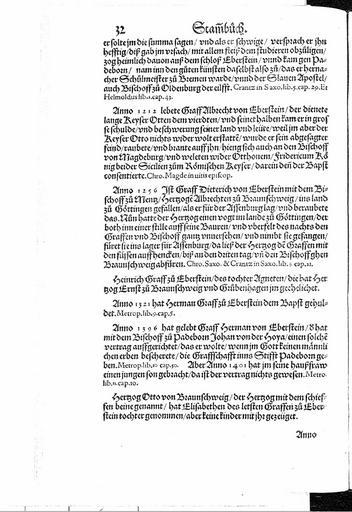 32 Stam̃bůch.
er solte jm die summa sagen / vnd als er schwige / versprach er jhn
hefftig diß gab jm vrsach / mit allem fleiß dem studieren obzůligen /
zog heimlich dauon auff dem schloß Eberstein / vnd kam gen Pa-
deborn / nam inn den gůten künsten daselbst also zů / das er herna-
cher Schůlmeister zu Bremen warde / vnnd der Slauen Apostel /
auch Bischoff zů Oldenburg der eilfft. Crantz in Saxo.lib.5.cap.29. Et
Helmoldus lib.1.cap.43.
Anno 1212 lebete Graff Albrecht von Eberstein / der dienete
lange Keyser Otten dem vierdten / vnd seiner halben kam er in gros
se schulde / vnd beschwerung seiner land vnd leüte / weil jm aber der
Keyser Otto nichts wider wolt erstatte / wurde er sein abgesagter
feind / raubete / vnd brante auff jhn: hieng sich auch an den Bischoff
von Magdeburg / vnd weleten wider Orthonem / Fridericum Kö
nig beider Sicilien zům Römischen Keyser / darein deñ der Bapst
consentierte. Chro. Magde in uitis episcop.
Anno 1256 Ist Graff Dieterich von Eberstein mit dem Bi-
schoff zů Mentz / Hertzoge Albrechten zů Braunschweig / ins land
zů Göttingen gefallen / als er für der Assenburg lag / vnd beraubete
das. Nůn hatte der Hertzog einen vogt im lande zů Göttingen / der
both inn einer stille auff seine Bauren / vnd vberfelt des nachts den
Graffen vnd Bischoff gantz vnuersehen / vnd nimbt sie gefangen /
füret sie ins lager für Assenburg / da ließ der Hertzog dē Graffen mit
den füssen auffhencken / biß an den dritten tag / vñ den Bischoff ghen
Braunschweig abfüren. Chro. Saxo & Crantz in Saxo.lib.8.cap.12.
Heinrich Graff zů Eberstein / des tochter Agneten / die hat Her
tzog Ernst zů Braunschweig vnd Grůbenhagen jm gechlichet.
Anno 1321 hat Herman Graff zů Eberstein dem Bapst gehul-
det. Metrop.lib.9.cap.5.
Anno 1396 hat gelebt Graff Herman von Eberstein / d hat
mit dem Bischoff zů Padeborn Johan von der Hoya / einen solchē
vertrag auffgerichtet / das er wolte / wenn jm Gott keinen männli
chen erben bescherete / die Graffschafft inns Stifft Padeborn ge-
ben. Metrop.lib.11.cap.50. Aber Anno 1401 hat jm seine haußfraw
einen jungen son gebracht / da ist der vertrag nichts gewesen. Metro-
lib.11.cap.10.
Hertzog Otto von Braunschweig / der Hertzog mit dem schief-
fen beine genannt / hat Elisabethen des letsten Graffen zů Eber
stein tochter genommen / aber keine kinder mit jhr gezeüget.
Anno